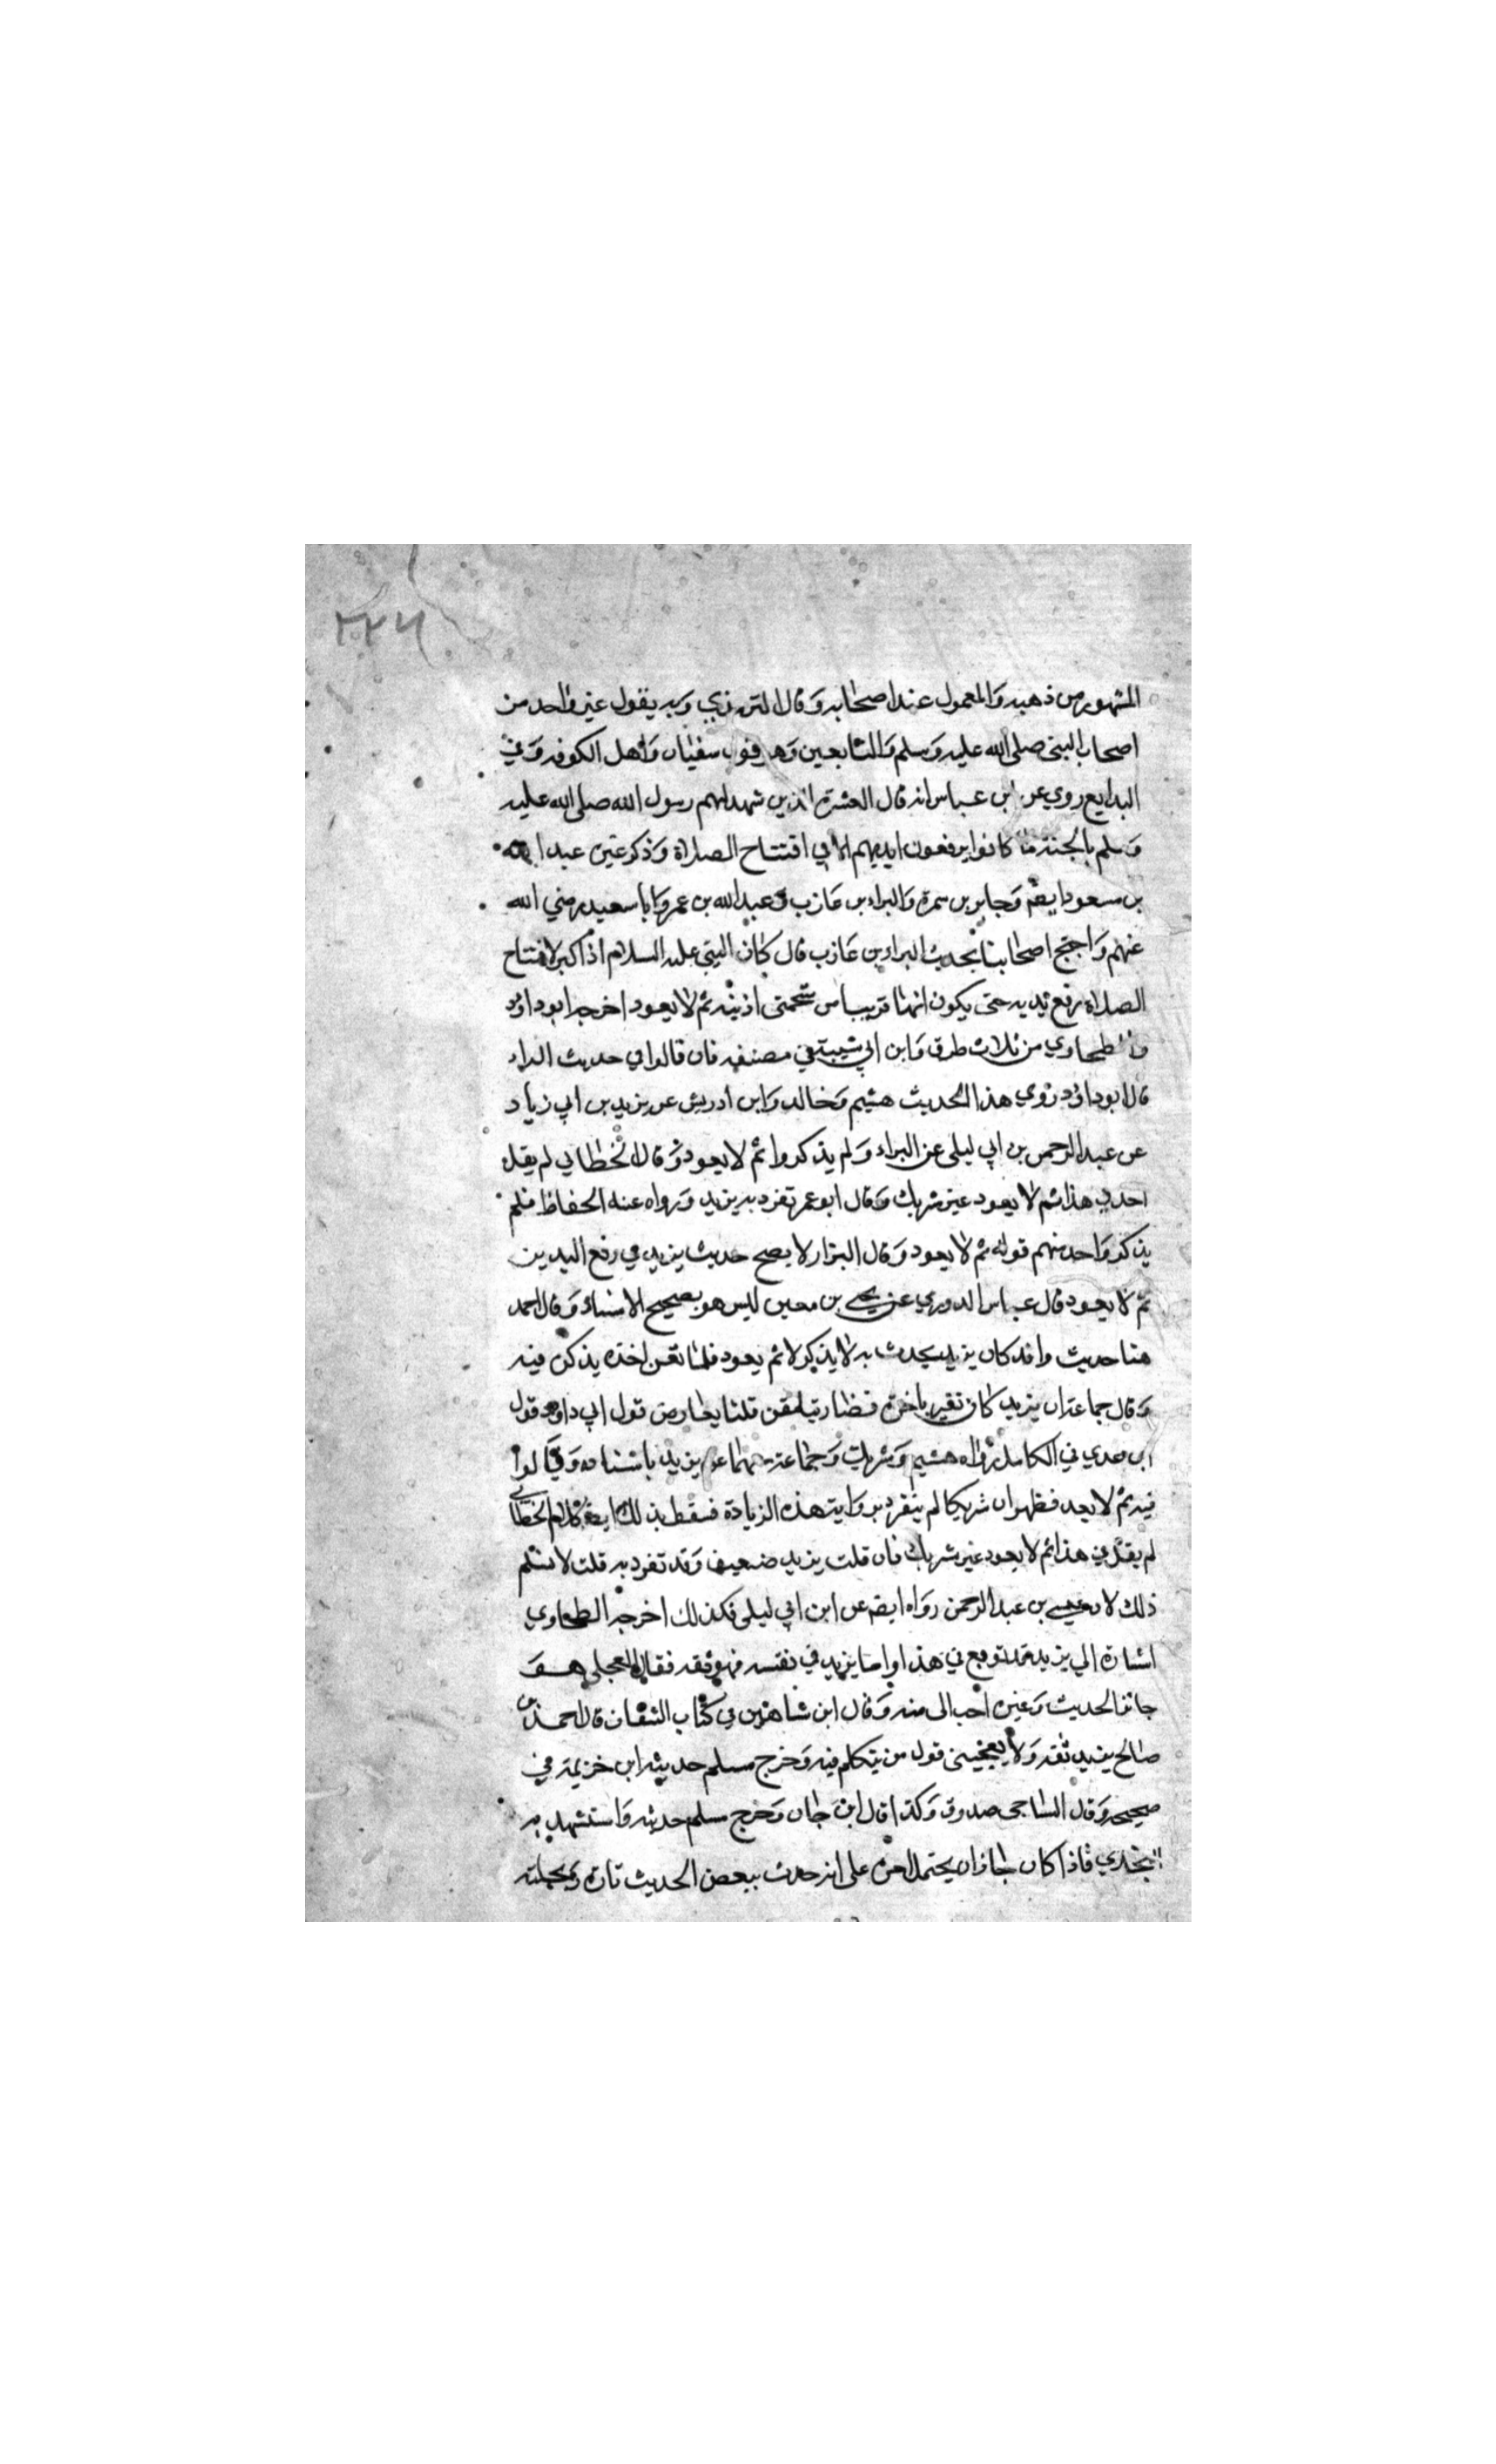 ٢٢٦
المشهور من مذهبه والمعمول عند اصحابه وقال الترمذي وبه يقول غير واحد من
اصحاب النبي صلى الله عليه وسلم والتابعين وهو قول سفيان واهل الكوفه وفي
البدايع روي عن ابن عباس انه قال العشرة الذين شهد لهم رسول الله صلى الله عليه
وسلم بالجنة ما كانوا يرفعون ايديهم الا في افتتاح الصلاة وذكر غيره عبد الله
بن مسعود ايضا وجابر بن سمرة والبراء بن عازب وعبد الله بن عمر وابا سعيد رضي الله
عنهم واحتج اصحابنا بحديث البراء بن عازب قال كان النبي عليه السلام اذا كبر لافتتاح
الصلاة رفع يديه حتى يكون ابهاماه قريبا من شحمتي اذنيه ثم لا يعود اخرجه ابو داود
والطحاوي من ثلاث طرق وابن ابي شيبة في مصنفه فان قالوا في حديث البراء
قال ابو داود روي هذا الحديث هشيم وخالد وابن ادريس عن يزيد بن ابي زياد
عن عبد الرحمن بن ابي ليلى عن البراء ولم يذكروا ثم لا يعود وقال الخطابي لم يقل
احد في هذا ثم لا يعود غير شريك وقال ابو عمر تفرد به يزيد ورواه عنه الحفاظ فلم
يذكر واحد منهم قوله ثم لا يعود وقال البزار لا يصح حديث يزيد في رفع اليدين
ثم لا يعود قال عباس الدوري عن يحيى بن معين ليس هو بصحيح الاسناد وقال احمد
هذا حديث واه قد كان يزيد يحدث به لا يذكر لا ثم يعود فلما لقن اخذه يذكره فيه
وقال جماعة ان يزيد كان تغير باخره فصار يتلقن قلنا يعارض قول ابي داود قول
ابن عدي في الكامل رواه هشيم وشريك وجماعة معهما عن يزيد باسناده وقالوا
فيه ثم لا يعد فظهر ان شريكا لم ينفرد برواية هذه الزيادة فسقط بذلك ايضا كلام الخطابي
لم يقل في هذا ثم لا يعود غير شريك فان قلت يزيد ضعيف وقد تفرد به قلت لا نسلم
ذلك لان عيسى بن عبد الرحمن رواه ايضا عن ابن ابي ليلى فكذلك اخرجه الطحاوي
اشارة الي ان يزيد قد توبع في هذا واما يزيد في نفسه فهو ثقه فقال العجلي هو
جائز الحديث وغيره احب الى منه وقال ابن شاهين في كتاب الثقات قال احمد بن
صالح يزيد ثقه ولا يعجبني قول من يتكلم فيه وخرج مسلم حديثه ابن خزيمة في
صحيحه وقال الساجي صدوق وكذا قال ابن حبان وخرج مسلم حديثه واستشهد به
البخاري فاذا كان جاز ان يحتمل امره على انه حدث ببعض الحديث تارة وبجملته